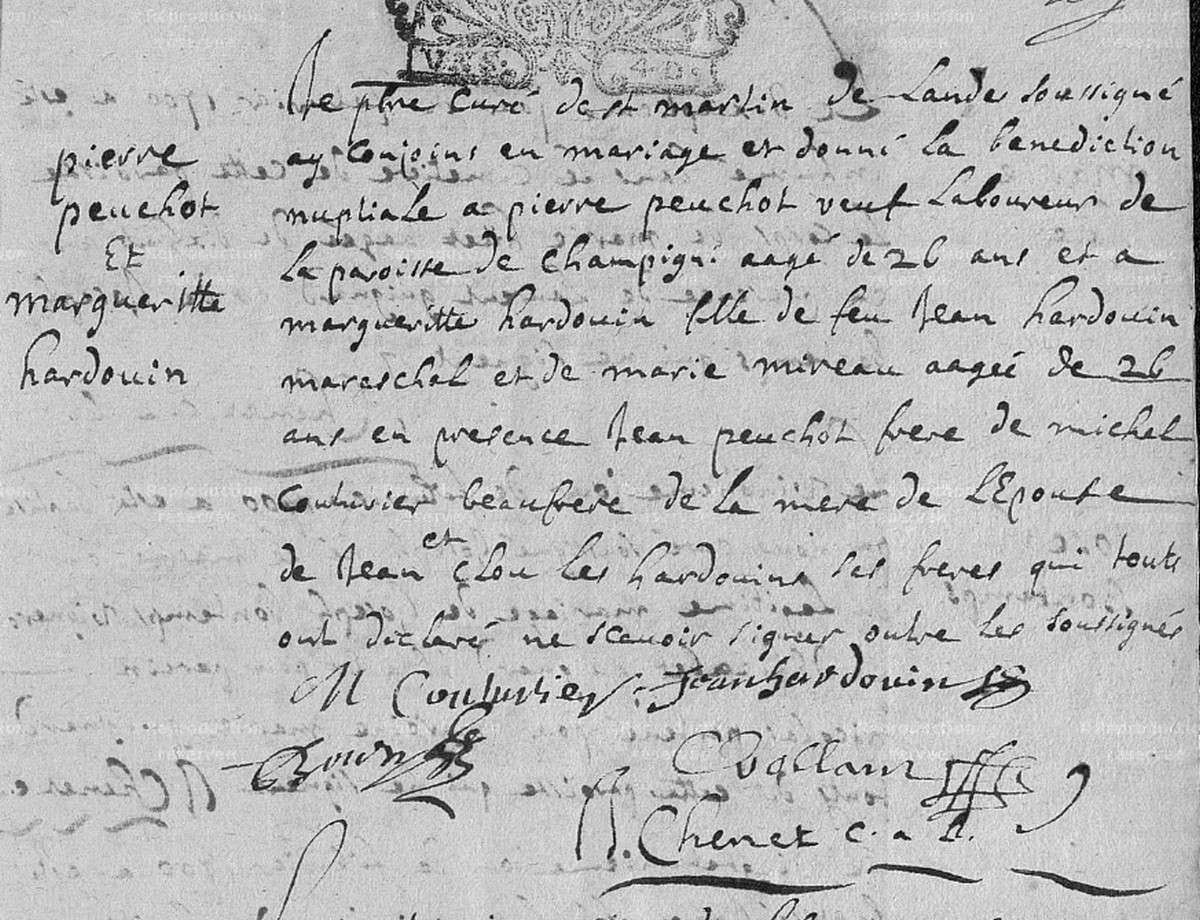 V.N.S. 4.D.
Je pbre Curé de st martin de Lande soussigné
pierre
peuchot
Et
margueritte
hardouin
ay Conjoins en mariage et donné la benediction
nuptiale a pierre peuchot veuf Laboureur de
la paroisse de Champigni aagé de 26 ans et a
margueritte hardouin fille de feu Jean hardouin
mareschal et de marie mireau aageé de 26
ans en presence Jean peuchot frere de michel
Couturier beaufrere de la mere de l'Epouse
de Jean et Clou les hardouins ses freres qui touts
ont déclaré ne scavoir signer outre les soussignés
M Couturier Jean hardouin
Chenet c. a L.